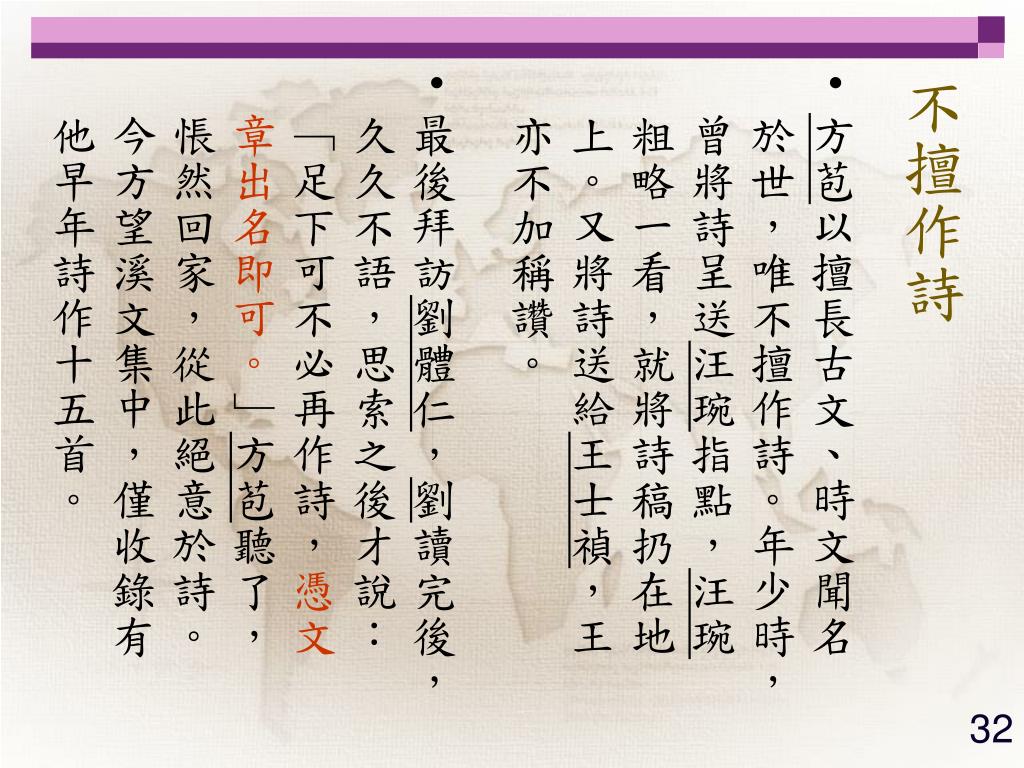 不擅作詩
•方苞以擅長古文、時文聞名
於世，唯不擅作詩。年少時，
曾將詩呈送汪琬指點，汪琬
粗略一看，就將詩稿扔在地
上。又將詩送給王士禎，王
亦不加稱讚。
•最後拜訪劉體仁，劉讀完後，
久久不語，思索之後才說：
「足下可不必再作詩，憑文
章出名即可。」方苞聽了，
悵然回家，從此絕意於詩。
今方望溪文集中，僅收錄有
他早年詩作十五首。
32